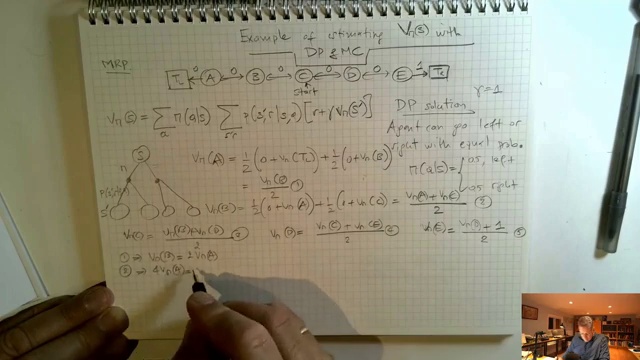 Example of estimating Vπ(s) with
DP & MC
MRP
T_L 0 A 0 B 0 C 0 D 0 E 1 T_R
start
Vπ(s) = Σ_a π(a|s) Σ_s'r p(s',r|s,a) [r+γVπ(s')]
DP solution γ=1
Agent can go left or
right with equal prob.
π(a|s)= { 0.5, left
0.5 right
S
π
s'
Vπ(A) = 1/2 (0+Vπ(T_L)) + 1/2 (0+Vπ(B))
= Vπ(B)/2 ①
Vπ(B) = 1/2 (0+Vπ(A)) + 1/2 (0+Vπ(C)) = (Vπ(A)+Vπ(C))/2 ②
Vπ(C) = (Vπ(B)+Vπ(D))/2 ③ Vπ(D) = (Vπ(C)+Vπ(E))/2 ④ Vπ(E) = (Vπ(D)+1)/2 ⑤
① ⇒ Vπ(B) = 2Vπ(A)
② ⇒ 4Vπ(A) =